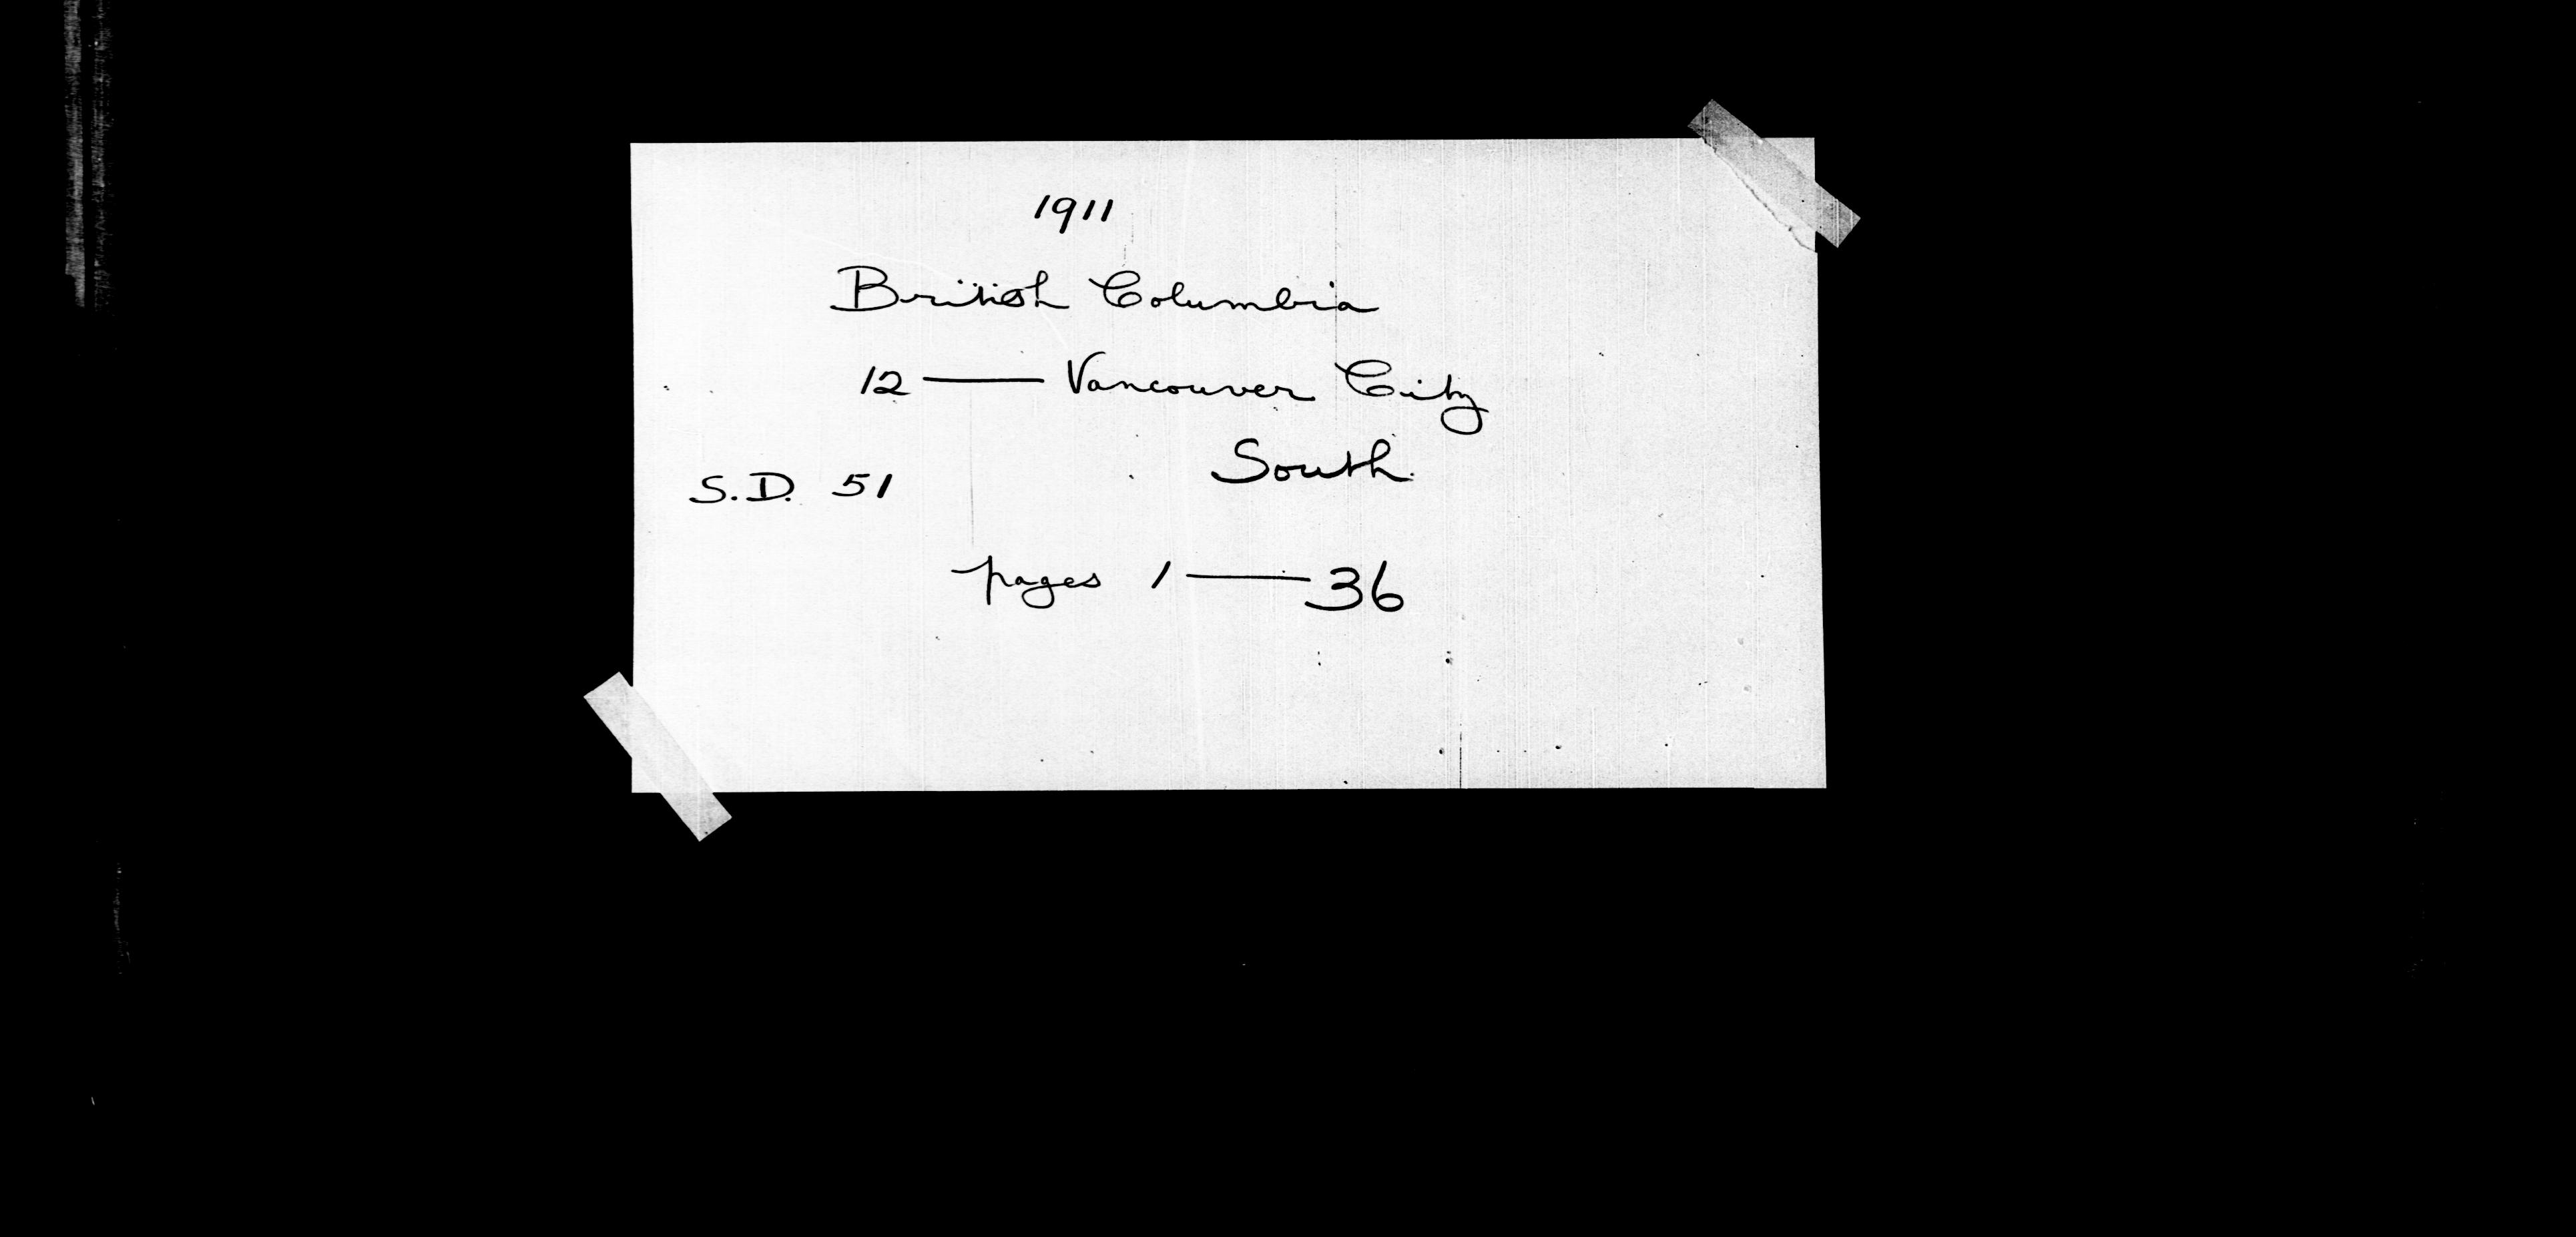 1911
British Columbia
12 — Vancouver City
South
S.D. 51
pages 1 — 36